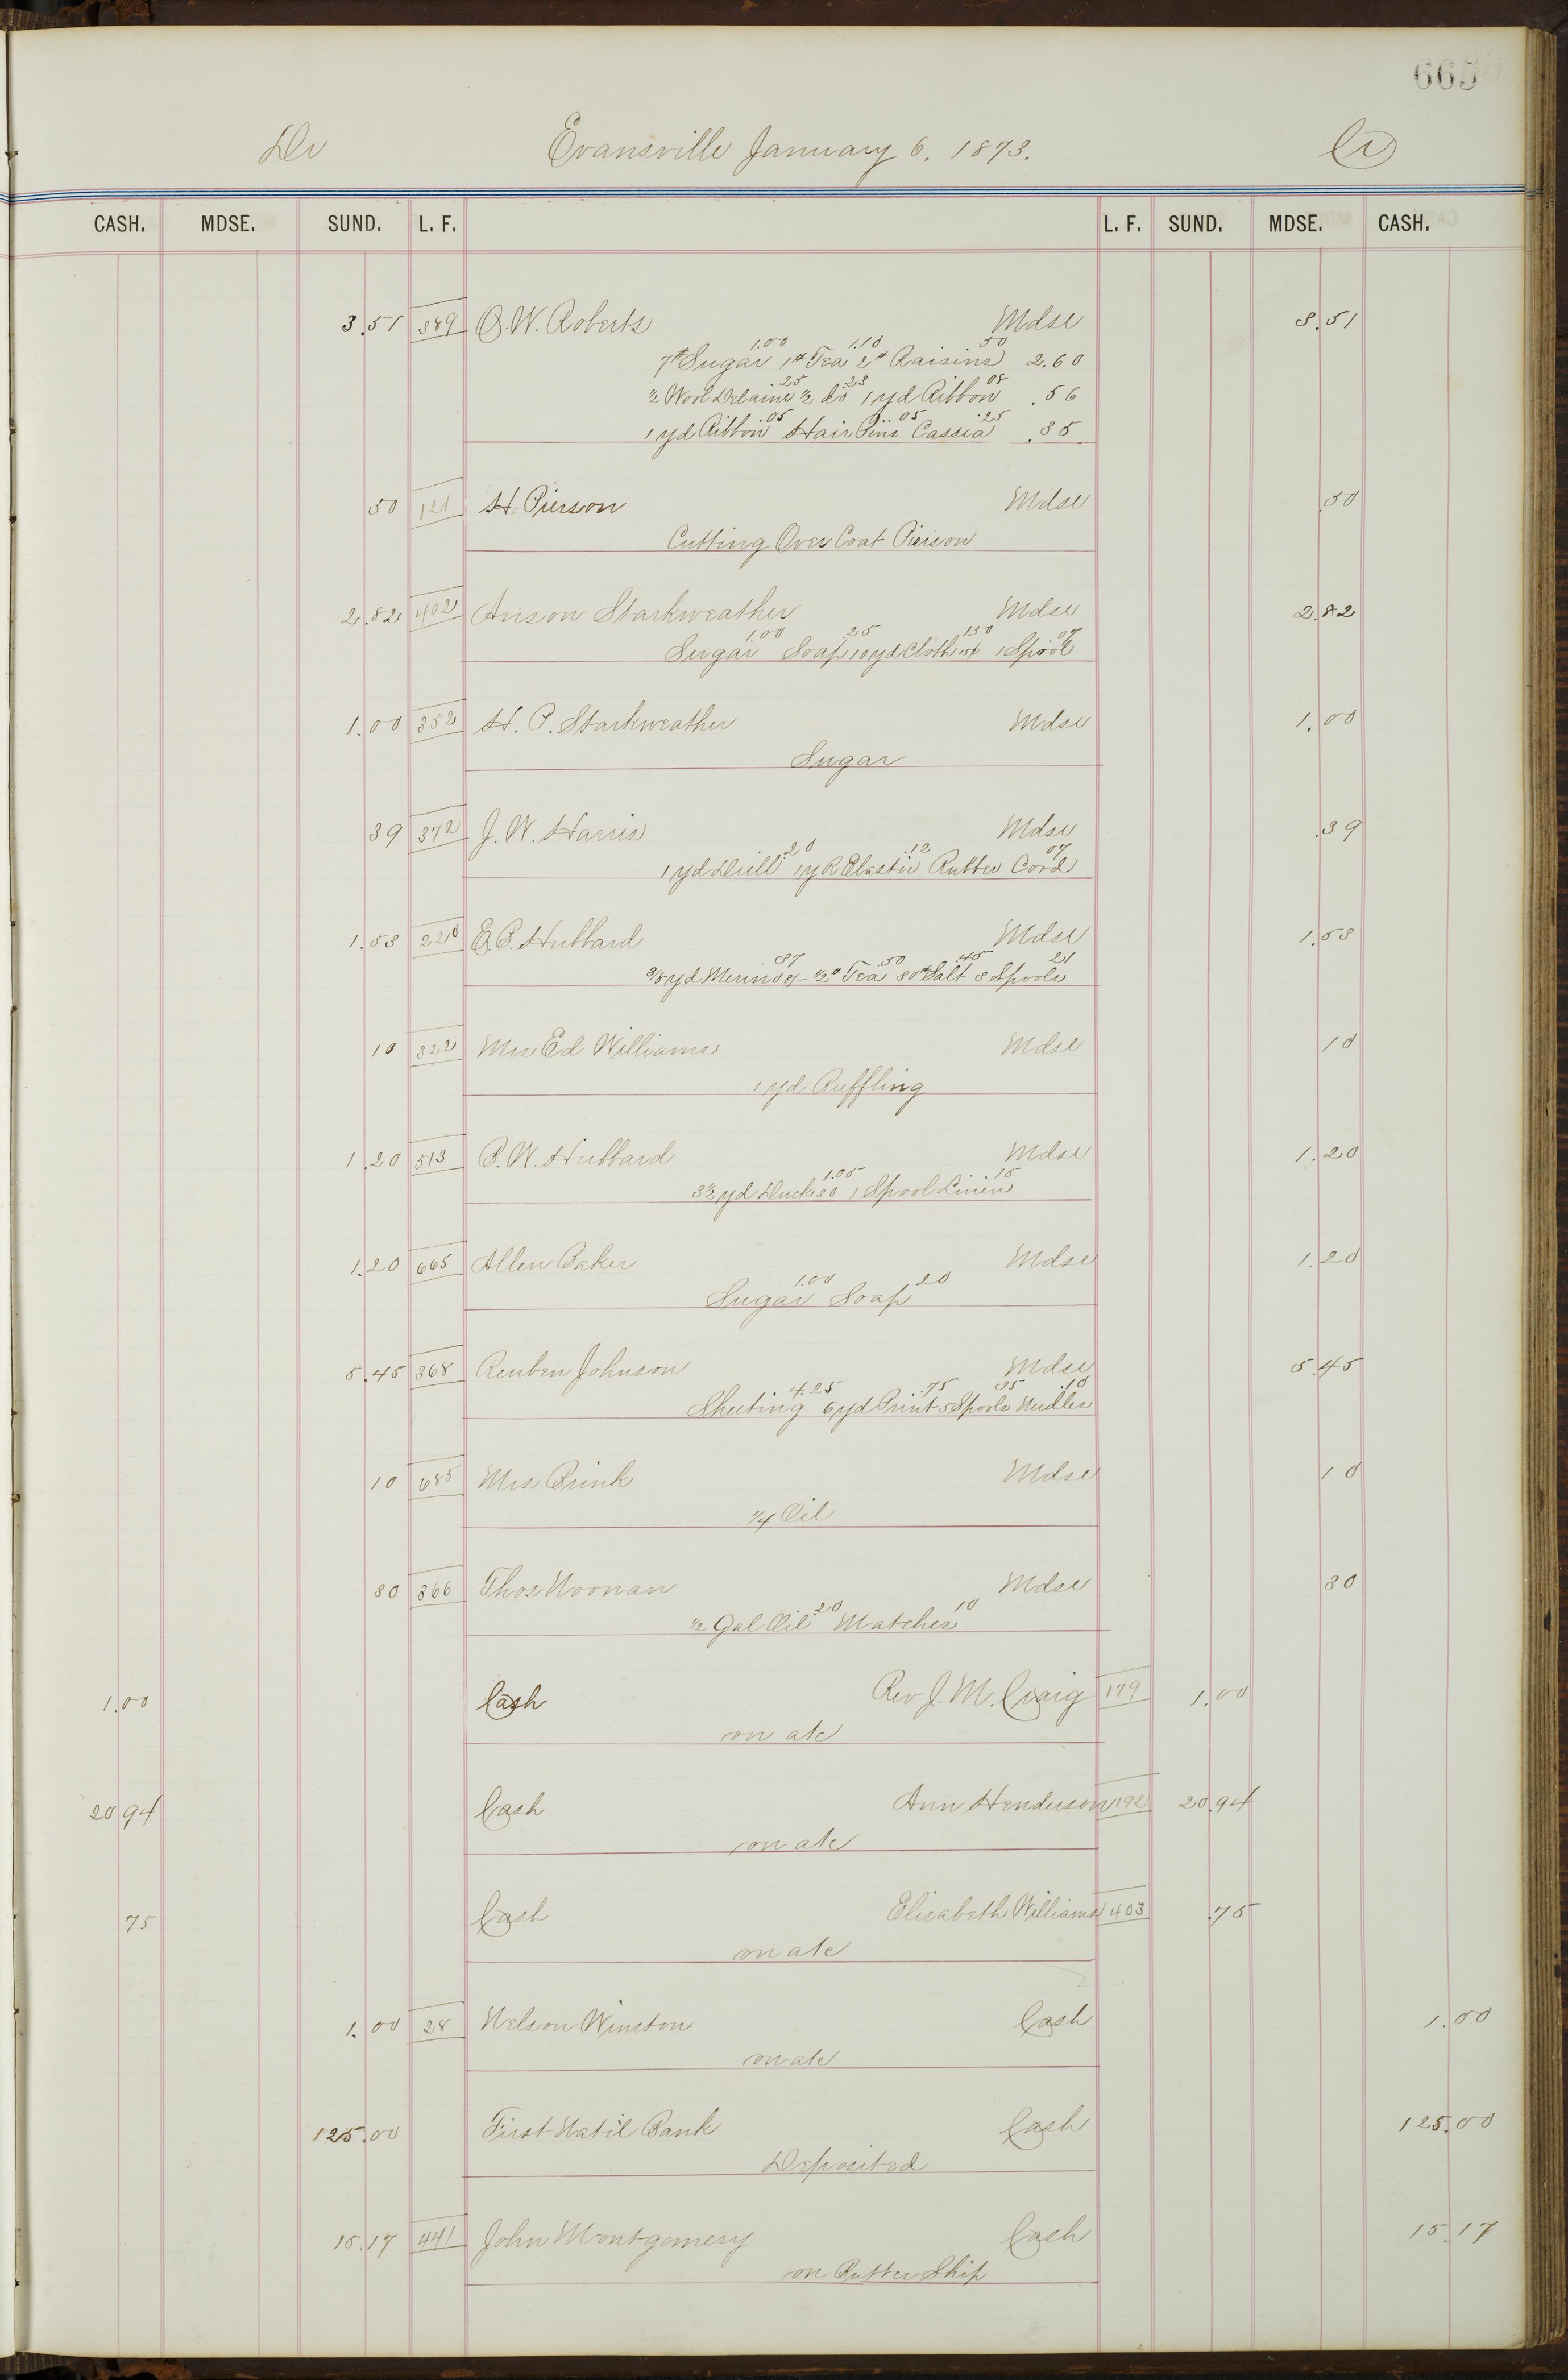 665
Dr Evansville January 6. 1873. Cr
CASH. MDSE. SUND. L. F. L. F. SUND. MDSE. CASH.
3.51 389 O. W. Roberts Mdse 3.51
1.00 1.10 50
7# Sugar 1# Tea 2# Raisins 2.60
25 .23 08
½ Wool Delaine ½ do 1 yd Ribbon .56
05 .05 .25
1 yd Ribbon Hair Pins Cassia .35
50 121 H. Pierson Mdse .50
Cutting Over Coat Pierson
2.82 402 Anson Starkweather Mdse 2.82
1.00 .25 1.50 07
Sugar Soap 10 yd Cloth 15 1 Spool
1.00 352 H. P. Starkweather Mdse 1.00
Sugar
39 372 J. W. Harris Mdse .39
.20 .12 07
1 yd Drill 1 yd Elastic Rubber Cord
1.53 220 E. B. Hubbard Mdse 1.53
37 .50 .45 21
3/8 yd Merino ½# Tea 30# Salt 3 Spools
10 322 Mrs Ed Williams Mdse 10
1 yd Ruffling
1.20 513 B. W. Hubbard Mdse 1.20
1.05 15
3½ yd Duck 30 1 Spool Linen
1.20 665 Allen Baker Mdse 1.20
1.00 20
Sugar Soap
5.45 368 Reuben Johnson Mdse 5.45
4.25 .75 35 .10
Sheeting 6 yd Print 5 Spools Needles
10 685 Mrs Brink Mdse 10
¼ Oil
30 366 Thos Noonan Mdse 30
.20 10
½ Gal Oil Matches
1.00 Cash Rev J. M. Craig 179 1.00
on a/c
20 94 Cash Ann Henderson 192 20.94
on a/c
75 Cash Elisabeth Williams 403 .75
on a/c
1.00 28 Nelson Winston Cash 1.00
on a/c
125.00 First Nat'l Bank Cash 125.00
Deposited
15.17 441 John Montgomery Cash 15.17
on Butter Ship